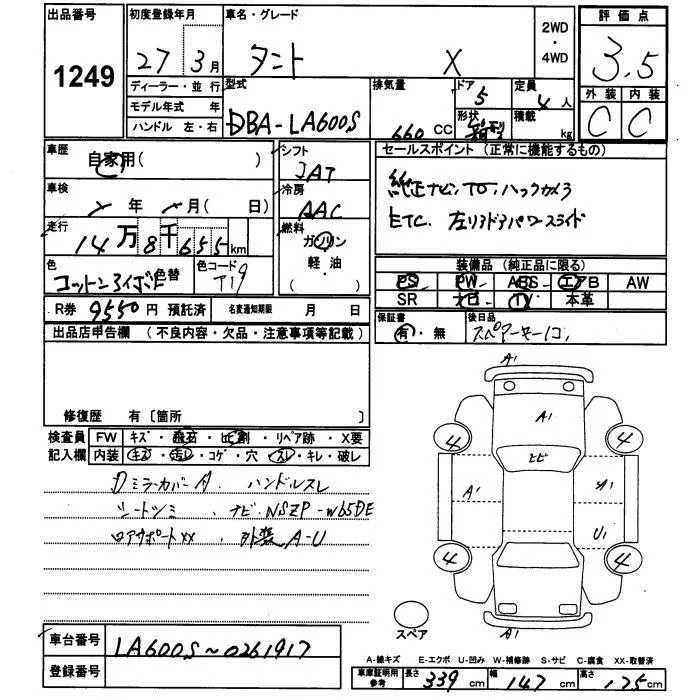 出品番号
1249
初度登録年月
27 3月
ディーラー・並 行
モデル年式 年
ハンドル 左・右
車名・グレード
タント X
2WD
・
4WD
型式
DBA-LA600S
排気量
660 CC
ドア
5
形状
箱形
定員
4 人
積載
kg
評価点
3.5
外装 内装
C C
車歴
自家用( )
車検
年 月( 日)
走行
14万8千655km
色
色替
色コード
T19
シフト
IAT
冷房
AAC
燃料
ガソリン
軽・油
( )
セールスポイント (正常に機能するもの)
純正ナビ、TV、バックカメラ
ETC 左リアドアパワースライド
装備品 (純正品に限る)
PS PW ABS エアB AW
SR ナビ TV 本革
R券 9550円 預託済
名変通知期限 月 日
保証書
有・無
後日品
スペアーキー1コ、
出品店申告欄 (不良内容・欠品・注意事項等記載)
修復歴 有〔箇所 〕
検査員
記入欄
FW キズ・飛石・ヒビ割・リペア跡・X要
内装 キズ・汚レ・コゲ・穴・スレ・キレ・破レ
DミラーカバーA ハンドルスレ
シートシミ 、ナビ NSZP-W65DE
ロアサポートXX 、外装A-U
A1
A1
ヒビ
4
4
A1
A1
U1
4
4
A1
スペア
車台番号
LA600S~0261917
登録番号
A-線キズ E-エクボ U-凹み W-補修跡 S-サビ C-腐食 XX-取替済
車庫証明用
参考
長さ 339cm 幅 147cm 高さ 175cm